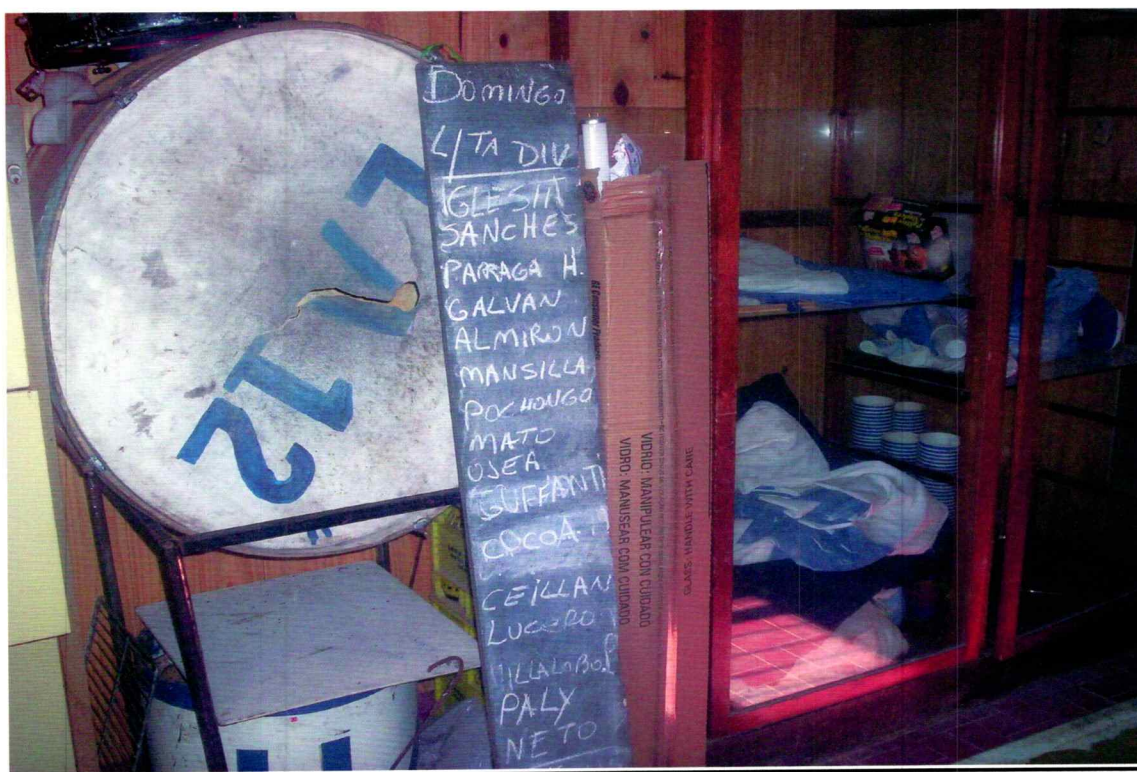 DOMINGO
4/TA DIV
IGLESIA
SANCHES
PARRAGA H.
GALVAN
ALMIRON
MANSILLA
POCHONGO
MATO
OSEA
GUFFANTI
COCOA
CEILLAN
LUCERO
VILLALOBO
PALY
NETO
LA 12
VIDRIO: MANIPULEAR CON CUIDADO
VIDRO: MANUSEAR COM CUIDADO
GLASS: HANDLE WITH CARE